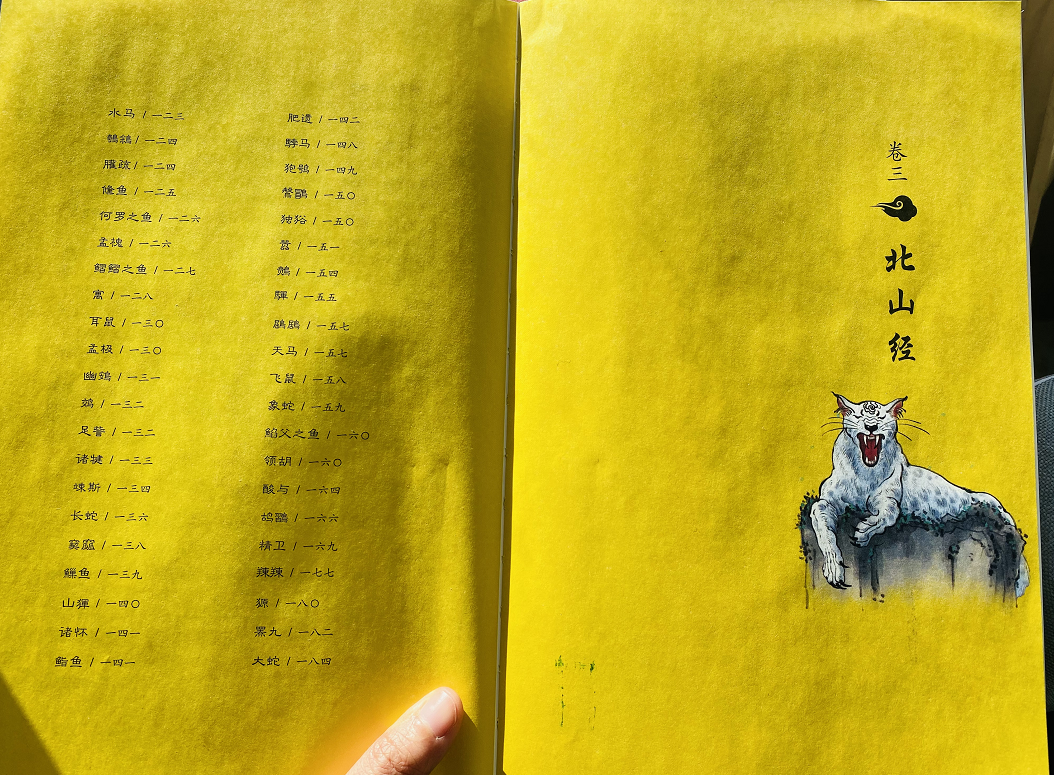 水马 / 一二三
鵸鵌 / 一二四
䑏疏 / 一二四
儵鱼 / 一二五
何罗之鱼 / 一二六
孟槐 / 一二六
鳛鳛之鱼 / 一二七
寓 / 一二八
耳鼠 / 一三〇
孟极 / 一三〇
幽鴳 / 一三一
鵁 / 一三二
足訾 / 一三二
诸犍 / 一三三
竦斯 / 一三四
长蛇 / 一三六
窫窳 / 一三八
鱳鱼 / 一三九
山𤟤 / 一四〇
诸怀 / 一四一
鮨鱼 / 一四一
肥遗 / 一四二
䮀马 / 一四八
狍鸮 / 一四九
鷔䳃 / 一五〇
独𤞞 / 一五〇
嚣 / 一五一
鷾 / 一五四
驒 / 一五五
鶌鶋 / 一五七
天马 / 一五七
飞鼠 / 一五八
象蛇 / 一五九
鮥父之鱼 / 一六〇
领胡 / 一六〇
酸与 / 一六四
鸪䳼 / 一六六
精卫 / 一六九
辣辣 / 一七七
獂 / 一八〇
罴九 / 一八二
大蛇 / 一八四
卷三
北山经